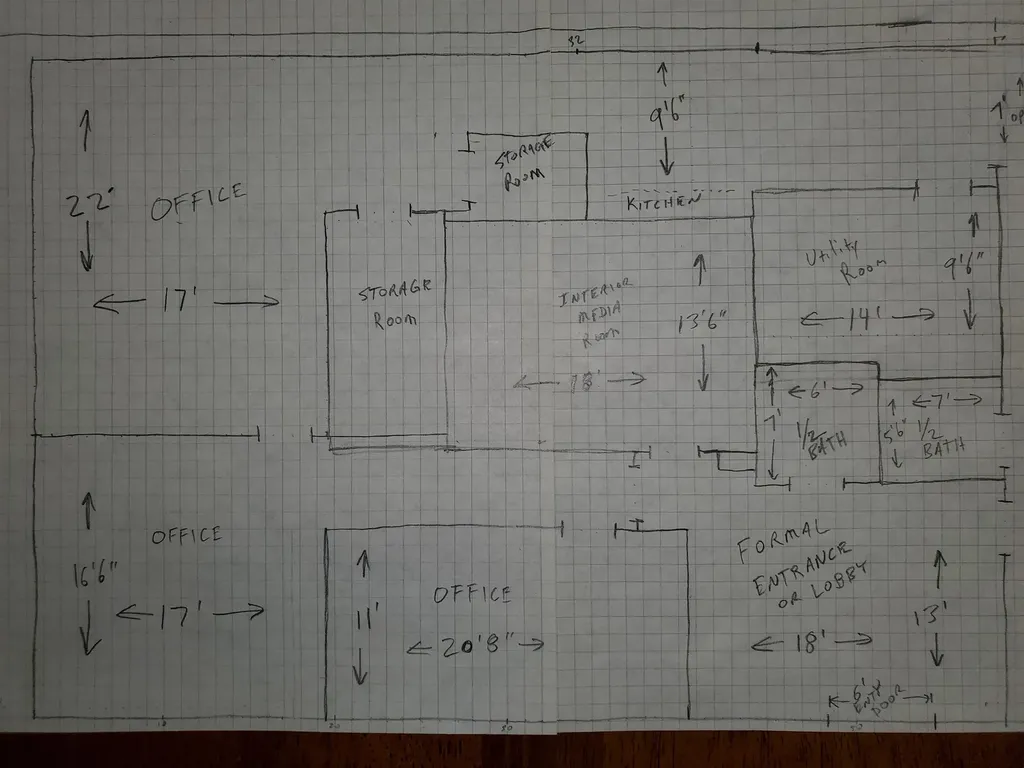 32
9'6"
7"
OP
STORAGE
ROOM
22'
OFFICE
KITCHEN
17'
STORAGE
ROOM
INTERIOR
MEDIA
ROOM
13'6"
18'
Utility
Room
9'6"
14'
6'
7'
1/2
BATH
7'
5'6"
1/2
BATH
OFFICE
16'6"
17'
11'
OFFICE
20'8"
FORMAL
ENTRANCE
OR LOBBY
13'
18'
6'
ENTY
DOOR
20
30